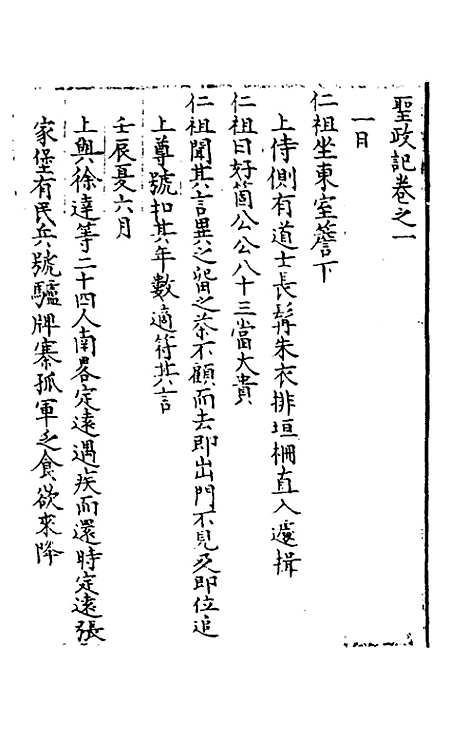 聖政記卷之一
一日
仁祖坐東室簷下
上侍側有道士長髯朱衣排垣柵直入遽揖
仁祖曰好箇公公八十三當大貴
仁祖聞其言異之留之茶不顧而去即出門不見及即位追
上尊號扣其年數適符其言
壬辰夏六月
上與徐達等二十四人南畧定遠遇疾而還時定遠張
家堡有民兵號驢牌寨孤軍乏食欲來降